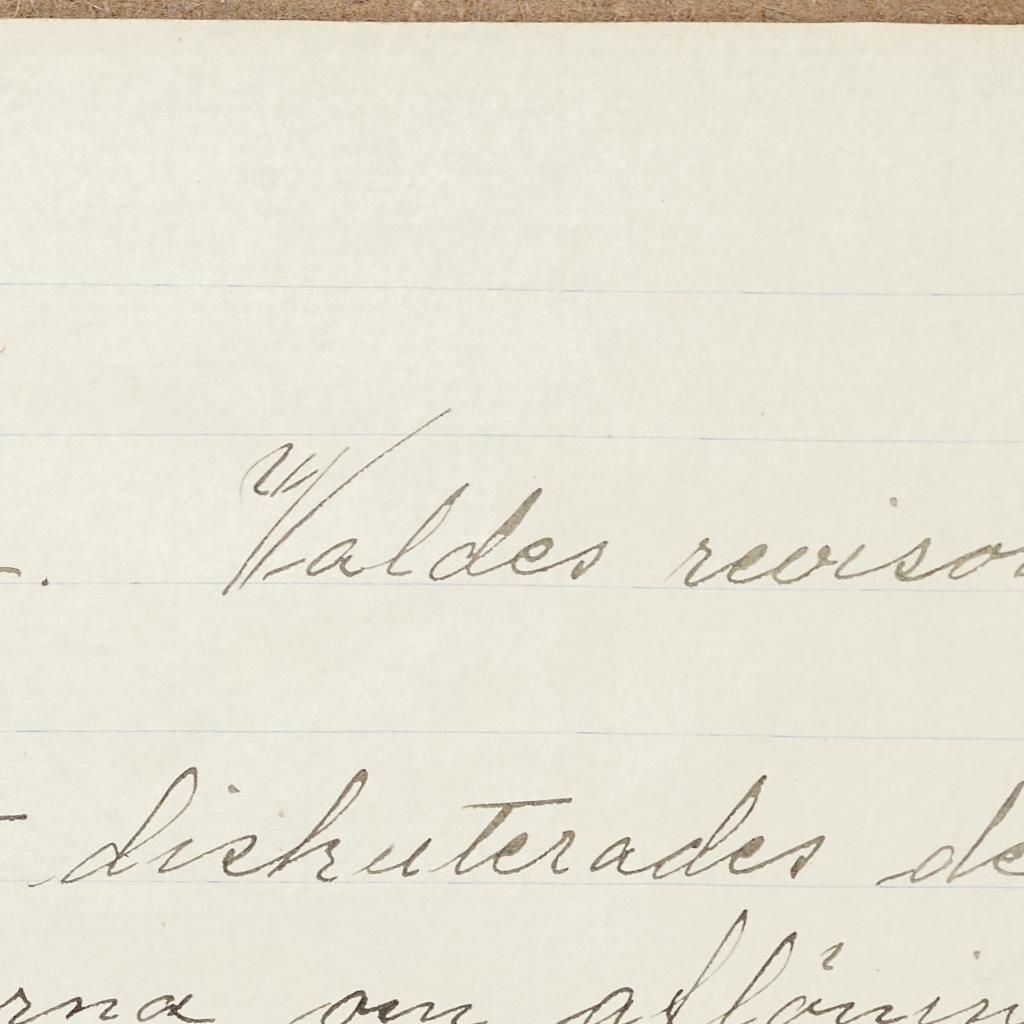 . Valdes revisor
diskuterades de
rna om aflönin